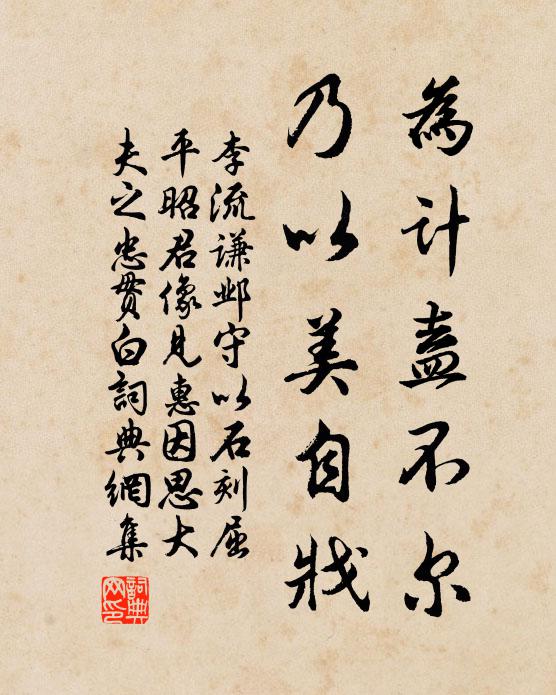 為計盍不尔
乃以美自戕
李流謙邺守以石刻屈
平昭君像見惠因思大
夫之忠贯白詞典網集
詞典
网印